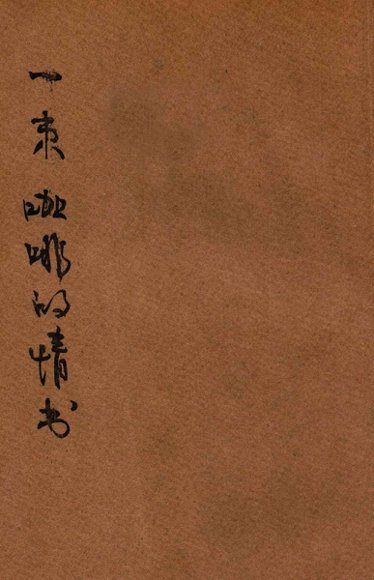 一束咖啡的情书